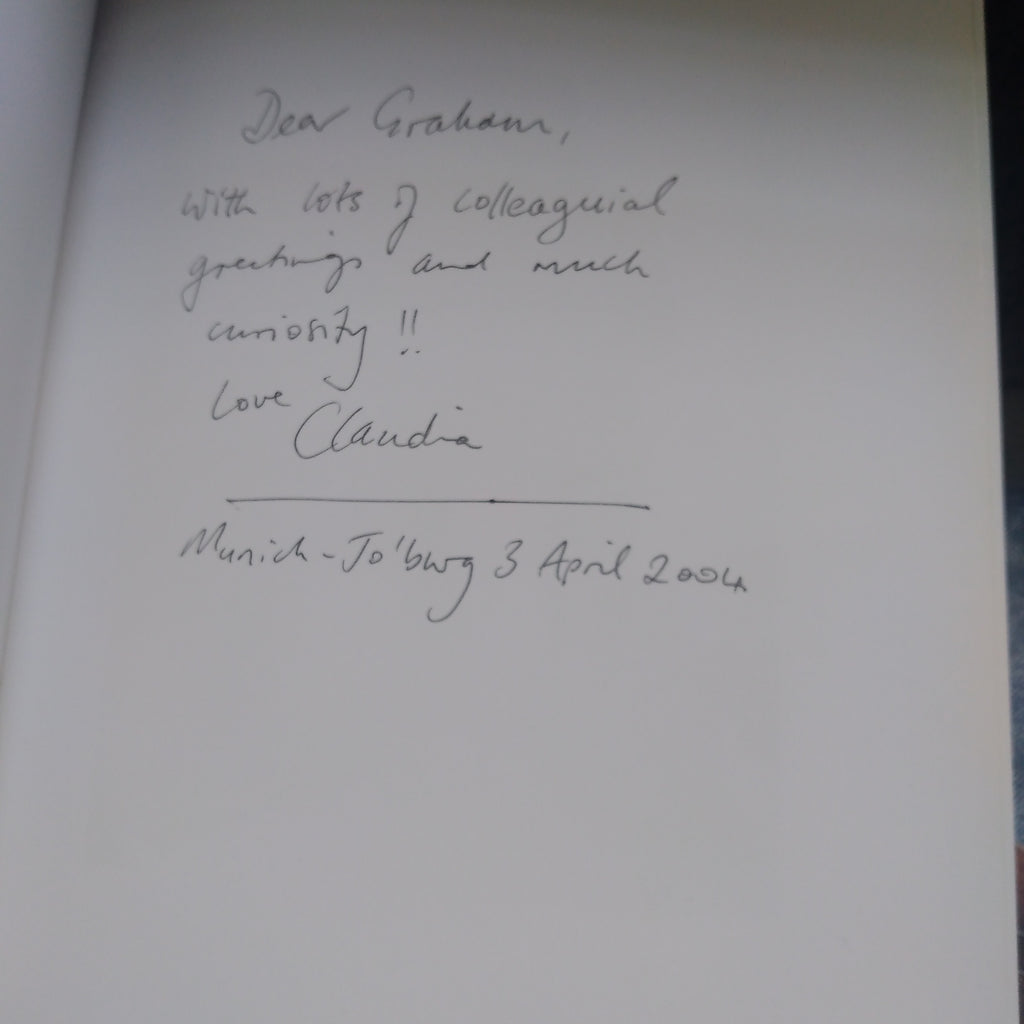 Dear Graham,
with lots of colleaguial
greetings and much
curiosity !!
Love
Claudia
Munich - Jo'burg 3 April 2004